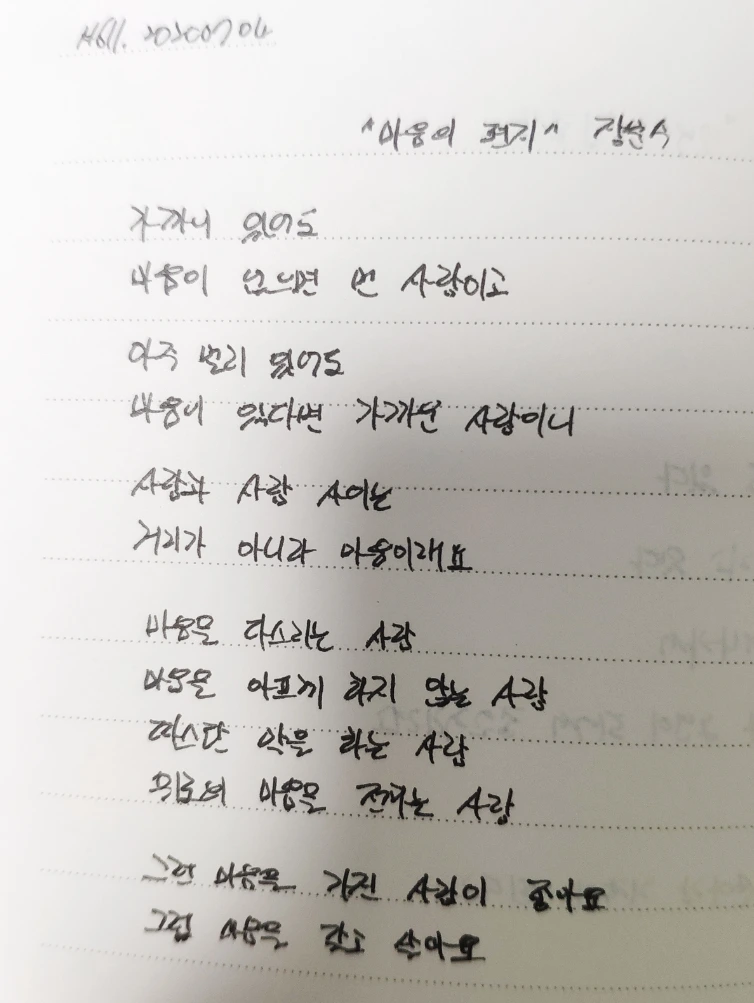 20200704
"마음의 편지"
가까이 있어도
마음이 없으면 먼 사람이고
아주 멀리 있어도
마음이 있다면 가까운 사람이니
사람과 사람 사이는
거리가 아니라 마음이래요
마음을 다스리는 사람
마음을 아프게 하지 않는 사람
따스한 말을 하는 사람
위로의 마음을 전하는 사람
그런 마음을 가진 사람이 좋아요
그런 마음을 갖고 살아요